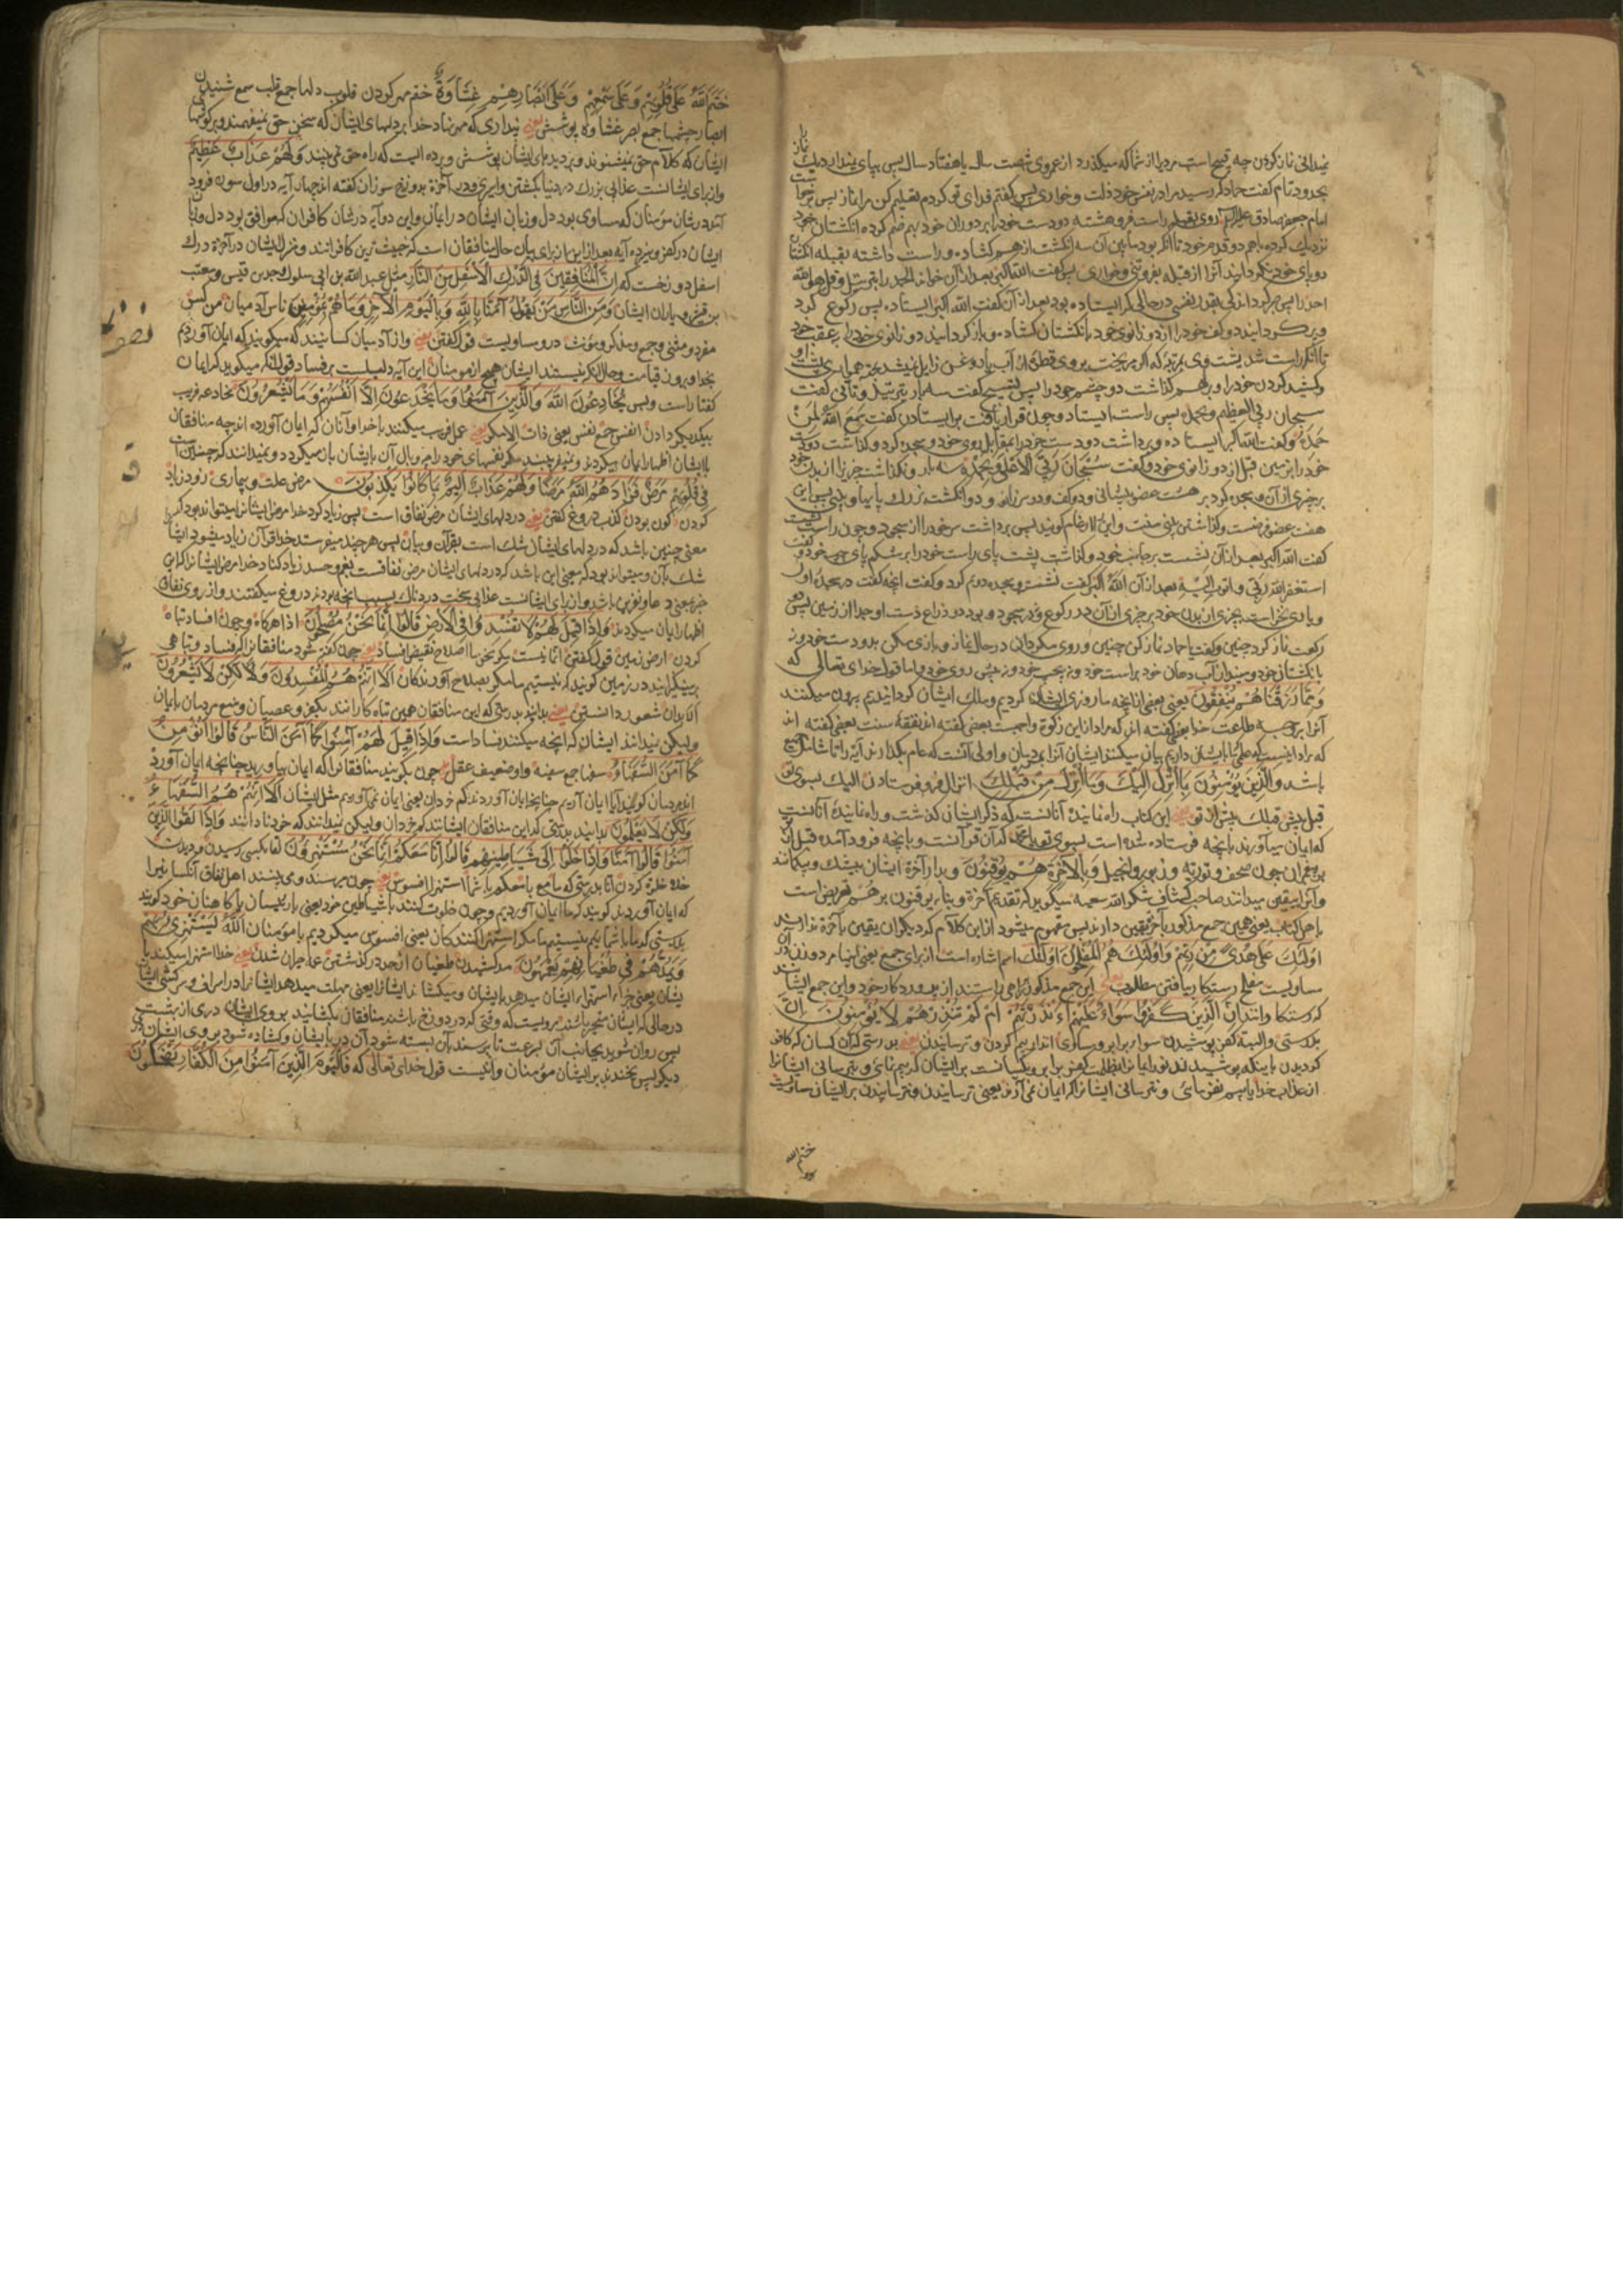 نمیدانی نماز کردن چه قبیح است مردیرا از شما که میگذرد از عمر وی شصت سال یا هفتاد سال پس بپای نمیدارد یک نماز
بحدود تمام گفت حماد که رسید مرا در نفس خود ذلت و خواری پس گفتم فدای تو کردم تعلیم کن مرا نماز پس برخواست
امام جعفر صادق علیه السلام روی بقبله راست فروهشته دو دست خود را بر دو ران خود بهم ضم کرده انگشتان خود
نزدیک کرده باهم دو قدم خود تا آنکه بود مابین آن سه انگشت از هم گشاده و راست داشته بقبله انگشتان
دو پای خود نگردانید آنرا از قبله بفروتنی و خواری پس گفت الله اکبر بعد از آن خواند الحمد را بترتیل و قل هو الله
احد را پس صبر کرد اندکی بقدر نفسی در حالی که ایستاده بود بعد از آن گفت الله اکبر ایستاده پس رکوع کرد
و پر گردانید دو کف خود را از دو زانوی خود با انگشتان گشاده و باز گردانید دو زانوی خود را بر عقب خود
تا آنکه راست شد پشت وی بمرتبه که اگر میریخت بر وی قطره از آب یا روغن زایل نمیشد بجهة همواری پشت او
و کشید گردن خود را و بر هم گذاشت دو چشم خود را پس تسبیح گفت سه بار بترتیل و تأنی گفت
سبحان ربی العظیم و بحمده پس راست ایستاد و چون قرار یافت بر ایستادن گفت سمع الله لمن
حمده و گفت الله اکبر ایستاده و برداشت دو دست خود را بمقابل روی خود و سجده کرد و گذاشت دو دست
خود را بر زمین قبل از دو زانوی خود و گفت سبحان ربی الاعلی و بحمده سه بار و نگذاشت چیزیرا از بدن خود
بر چیزی از آن و سجده کرد بر هشت عضو پیشانی و دو کف و دو سر زانو و دو انگشت بزرگ پا بیا و بینی پس این
هفت عضو فرضست و گذاشتن بینی سنت و این را ارغام گویند پس برداشت سر خود را از سجود و چون راست نشست
گفت الله اکبر بعد از آن نشست بر جانب خود و گذاشت پشت پای راست خود را بر شکم پای چپ خود و گفت
استغفر الله ربی و اتوب الیه بعد از آن الله اکبر گفت نشسته و سجده دویم کرد و گفت آنچه گفت در سجده اول
و یاری نخواست بچیزی از بدن خود بر چیزی از آن در رکوع و در سجود و بود دو ذراع دست او جدا از زمین پس دو
رکعت نماز کرد چنین و گفت یا حماد نماز کن چنین و روی مگردان در حال نماز و بازی مکن بدو دست خود و نه
بانگشتان خود و مینداز آب دهان خود براست خود و نه بچپ خود و نه پیش روی خود و اما قول خدای تعالی که
وَمِمَّا رَزَقْنَاهُمْ يُنْفِقُونَ یعنی بعضی از آنچه ما روزی ایشان کردیم و ملک ایشان گردانیدیم بیرون میکنند
آنرا بر وجه طاعت خدا بعضی گفته اند که مراد از این زکوة واجبست بعضی گفته اند نفقه سنت بعضی گفته اند
باشد وَالَّذِينَ يُؤْمِنُونَ بِمَا أُنْزِلَ إِلَيْكَ وَمَا أُنْزِلَ مِنْ قَبْلِكَ انزال فرو فرستادن الیک بسوی تو
قبل پیش قبلک پیش از تو یعنی این کتاب راه نماینده آنانست که ذکر ایشان گذشت و راه نماینده آنانست
که ایمان میآورند بآنچه فرستاده شده است بسوی تو یا محمد که آن قرآنست و بآنچه فرود آمده قبل از تو
بر پیغمبران چون صحف و تورية و زبور و انجیل وَبِالْآخِرَةِ هُمْ يُوقِنُونَ و بدار آخرة ایشان بیشک و بیگمانند
و آنرا بیقین میدانند صاحب کشاف شکر الله سعیه میگوید که تقدیم آخرة و بناء یوقنون بر هم تعریض است
باهل کتاب یعنی همین جمع مذکور بآخرة یقین دارند پس مفهوم میشود از این کلام که دیگران یقین بآخرة ندارند
أُولَئِكَ عَلَى هُدًى مِنْ رَبِّهِمْ وَأُولَئِكَ هُمُ الْمُفْلِحُونَ اولئک اسم اشاره است از برای جمع یعنی اینها مرد و زن در آن
مساویست مفلح رستگار یافتن مطلوب یعنی این جمع مذکور بر راهی راستند از پروردگار خود و این جمع ایشانند
که رستگارانند إِنَّ الَّذِينَ كَفَرُوا سَوَاءٌ عَلَيْهِمْ أَأَنْذَرْتَهُمْ أَمْ لَمْ تُنْذِرْهُمْ لَا يُؤْمِنُونَ انّ
بدرستی و البته کفر پوشیدن سواء برابر و مساوی انذار بیم کردن و ترسانیدن یعنی بدرستی که آن کسان که کافر
گردیدن باینکه پوشیدند نور ایمانرا بظلمت کفر برابر و یکسانست بر ایشان که بیم نمائی و بترسانی ایشانرا
از عذاب خدا یا بیم نفرمائی و نترسانی ایشانرا که ایمان نمی آرند یعنی ترسانیدن و نترسانیدن بر ایشان مساویست
ختم الله
خَتَمَ اللَّهُ عَلَى قُلُوبِهِمْ وَعَلَى سَمْعِهِمْ وَعَلَى أَبْصَارِهِمْ غِشَاوَةٌ ختم مهر کردن قلوب دلها جمع قلب سمع شنیدن
ابصار چشمها جمع بصر غشاوة پوشش یعنی پنداری که مهر نهاد خدا بر دلهای ایشان که سخن حق نمیفهمند و بر گوشهای
ایشان که کلام حق نمیشنوند و بر دیدهای ایشان پوشش و پرده ایست که راه حق نمی بینند وَلَهُمْ عَذَابٌ عَظِيمٌ
و از برای ایشانست عذابی بزرگ در دنیا بکشتن و اسیری و در آخرة بدوزخ سوزان گفته اند چهار آیه در اول سوره فرود
آمد در شان مؤمنان که مساوی بود دل و زبان ایشان در ایمان و این دو آیه در شان کافران که موافق بود دل و زبان
ایشان در کفر و سیزده آیه بعد از این از برای بیان حال منافقان است که خبیث ترین کافرانند و منزل ایشان در آخرة درک
اسفل دوزخست که إِنَّ الْمُنَافِقِينَ فِي الدَّرْكِ الْأَسْفَلِ مِنَ النَّارِ مثل عبد الله بن ابی سلول و جد بن قیس و معتب
بن قشیر و یاران ایشان وَمِنَ النَّاسِ مَنْ يَقُولُ آمَنَّا بِاللَّهِ وَبِالْيَوْمِ الْآخِرِ وَمَا هُمْ بِمُؤْمِنِينَ ناس آدمیان من کس
مفرد و مثنی و جمع و مذکر و مؤنث درو مساویست قول گفتن یعنی و از آدمیان کسانیند که میگویند که ایمان آوردیم
بخدا و بروز قیامت و حال آنکه نیستند ایشان هیچ از مومنان این آیه دلیلست بر فساد قول آنکه میگوید که ایمان
گفتار است و بس يُخَادِعُونَ اللَّهَ وَالَّذِينَ آمَنُوا وَمَا يَخْدَعُونَ إِلَّا أَنْفُسَهُمْ وَمَا يَشْعُرُونَ مخادعه فریب
بیکدیگر دادن انفس جمع نفس یعنی ذات الا مگر یعنی عمل فریب میکنند با خدا و آنان که ایمان آورده اند چه منافقان
با ایشان اظهار ایمان میکردند و نمیفریبند مگر نفسهای خود را و وبال آن بایشان باز میگردد و نمیدانند که چنین است
فِي قُلُوبِهِمْ مَرَضٌ فَزَادَهُمُ اللَّهُ مَرَضًا وَلَهُمْ عَذَابٌ أَلِيمٌ بِمَا كَانُوا يَكْذِبُونَ مرض علت و بیماری زود زیاد
کردن کون بودن کذب دروغ گفتن یعنی در دلهای ایشان مرض نفاق است پس زیاد کرد خدا مرض ایشانرا میتواند بود که
معنی چنین باشد که در دلهای ایشان شک است بقرآن و بیان پس هر چند میفرستد خدا قرآن زیاد میشود ایشانرا
شک بآن و میتواند بود که معنی این باشد که در دلهای ایشان مرض نفاقست بغم و حسد زیاد کناد خدا مرض ایشانرا که این
خبر بمعنی دعا و نفرین باشد و از برای ایشانست عذابی سخت دردناک بسبب آنچه بودند دروغ میگفتند و از روی نفاق
اظهار ایمان میکردند وَإِذَا قِيلَ لَهُمْ لَا تُفْسِدُوا فِي الْأَرْضِ قَالُوا إِنَّمَا نَحْنُ مُصْلِحُونَ اذا هرگاه و چون افساد تباه
کردن ارض زمین قول گفتن انما نیست مگر نحن ما اصلاح نقیض افساد یعنی چون گفته شود منافقانرا که فساد و تباهی
میگیزانید در زمین گویند که نیستیم ما مگر بصلاح آورندگان أَلَا إِنَّهُمْ هُمُ الْمُفْسِدُونَ وَلَكِنْ لَا يَشْعُرُونَ
الا بدان شعور دانستن یعنی بدانید بدرستی که این منافقان همین تباه کارانند بکفر و عصیان و منع مردمان بایمان
ولیکن نمیدانند ایشان که آنچه میکنند فساد است وَإِذَا قِيلَ لَهُمْ آمِنُوا كَمَا آمَنَ النَّاسُ قَالُوا أَنُؤْمِنُ
كَمَا آمَنَ السُّفَهَاءُ سفها جمع سفیه و او ضعیف عقل یعنی چون گویند منافقانرا که ایمان بیاورید چنانچه ایمان آوردند
اند مردمان گویند آیا ایمان آریم چنانچه ایمان آوردند کم خردان یعنی ایمان نمی آوریم مثل ایشان أَلَا إِنَّهُمْ هُمُ السُّفَهَاءُ
وَلَكِنْ لَا يَعْلَمُونَ بدانید بدرستی که این منافقان ایشانند کم خردان ولیکن نمیدانند که خود نادانند وَإِذَا لَقُوا الَّذِينَ
آمَنُوا قَالُوا آمَنَّا وَإِذَا خَلَوْا إِلَى شَيَاطِينِهِمْ قَالُوا إِنَّا مَعَكُمْ إِنَّمَا نَحْنُ مُسْتَهْزِءُونَ لقا بکسی رسیدن و دیدن
خلو خلوة کردن انّا بدرستی که ما مع با معکم با شما استهزا افسوس یعنی چون میرسند و می بینند اهل نفاق آنکسانیرا
که ایمان آوردند گویند که ما ایمان آوردیم و چون خلوت کنند با شیاطین خود یعنی با رئیسان یا کاهنان خود گویند
بدرستی که ما با شمائیم نیستیم ما مگر استهزا کنندگان یعنی افسوس میکردیم با مؤمنان اللَّهُ يَسْتَهْزِئُ بِهِمْ
وَيَمُدُّهُمْ فِي طُغْيَانِهِمْ يَعْمَهُونَ مد کشیدن طغیان از حد در گذشتن عمه حیران شدن یعنی خدا استهزا میکند با
یشان یعنی جزاء استهزاء ایشان میدهد بایشان و میکشاند ایشانرا یعنی مهلت میدهد ایشانرا در اسراف و سرکشی ایشان
در حالی که ایشان متحیر باشند مرویست که وقتی که در دوزخ باشند منافقان بگشایند بروی ایشان دری از بهشت
پس روان شوند بجانب آن بسرعت تا برسند بآن بسته شود آن در بایشان و گشاده شود بروی ایشان در
دیگر پس بخندند بر ایشان مؤمنان و اینست قول خدای تعالی که فَالْيَوْمَ الَّذِينَ آمَنُوا مِنَ الْكُفَّارِ يَضْحَكُونَ